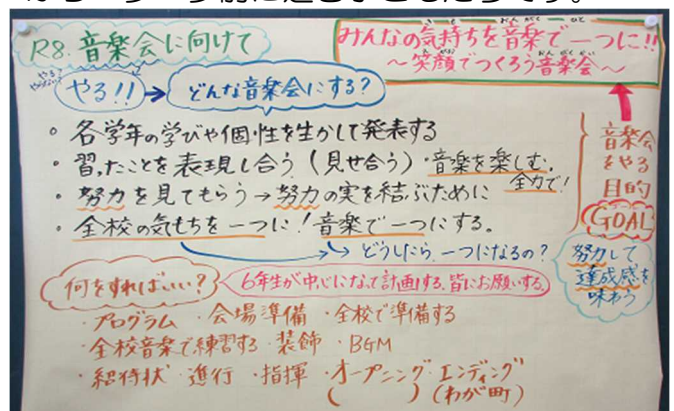 R8.音楽会に向けて
みんなの気持ちを音楽で一つに!!
～笑顔でつくろう音楽会～
やる!! → どんな音楽会にする?
・各学年の学びや個性を生かして発表する
・習ったことを表現し合う（見せ合う）・音楽を楽しむ。全力で!
・努力を見てもらう→努力の実を結ぶために
・全校の気もちを一つに!音楽で一つにする。
→どうしたら、一つになるの?
音楽会
をやる
目的
GOAL
努力して
達成感を
味わう
何をすればいい?
6年生が中心になって計画する。皆にお願いする。
・プログラム ・会場準備 ・全校で準備する
・全校音楽で練習する ・装飾 ・BGM
・招待状 ・進行 ・指揮 ・オープニング・エンディング
(　　　) (わが町)